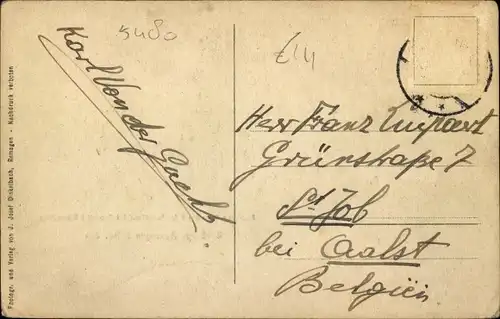 Photogr. und Verlag von J. Josef Dinkelbach, Remagen - Nachdruck verboten
5480
Karl Von der Gucht
€14
Herr Franz
Grünstraße 7
St Job
bei Aalst
Belgien